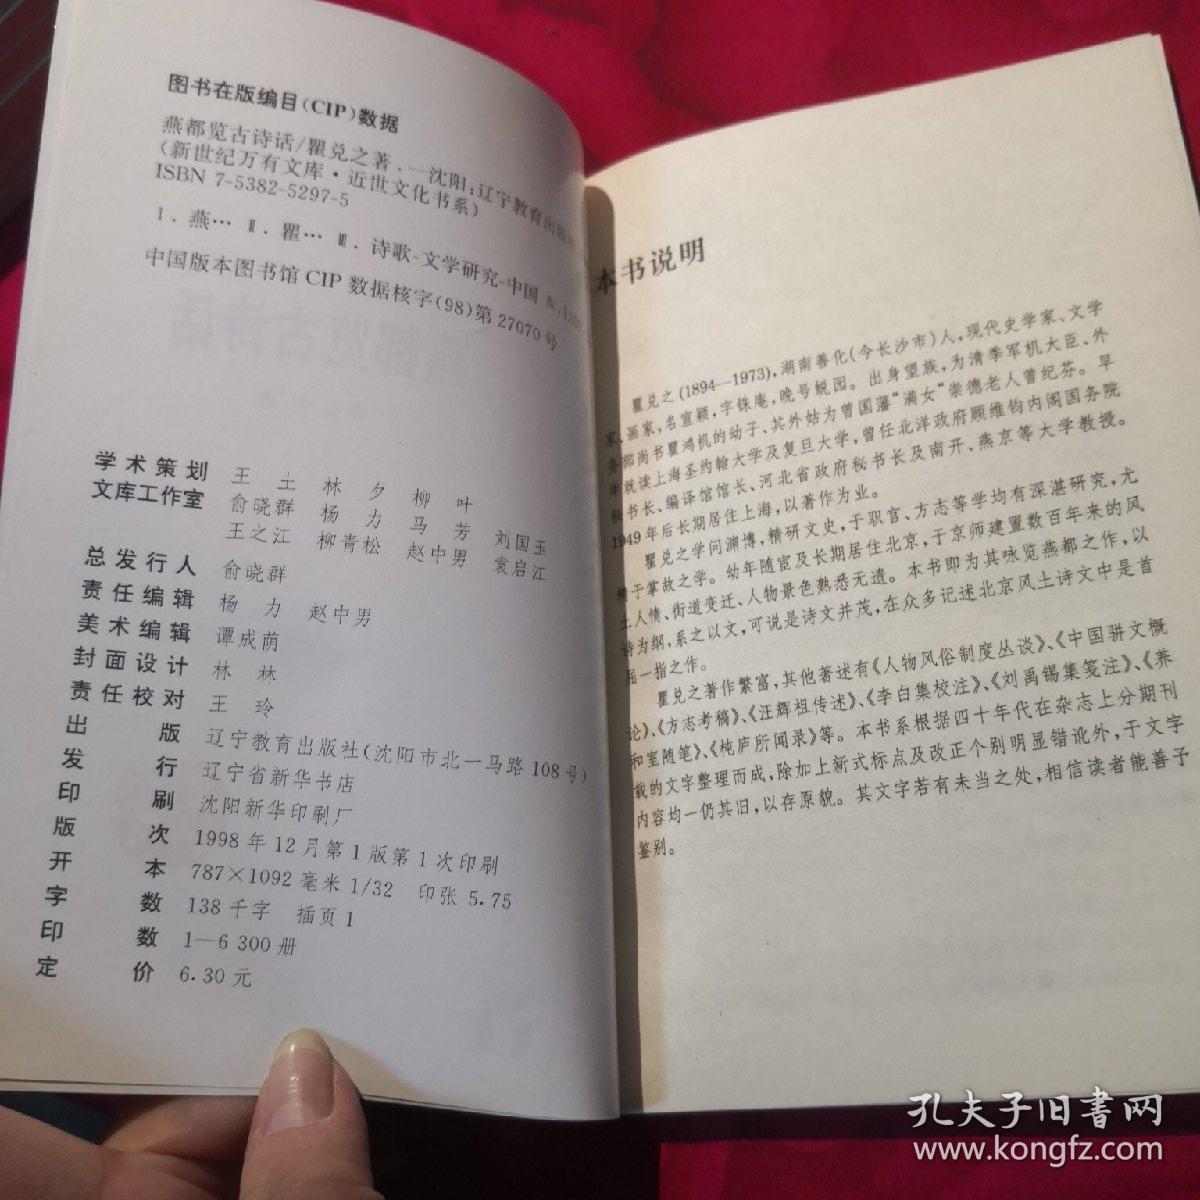 图书在版编目(CIP)数据
燕都览古诗话/瞿兑之著.—沈阳:辽宁教育出版
(新世纪万有文库·近世文化书系)
ISBN 7-5382-5297-5
Ⅰ.燕… Ⅱ.瞿… Ⅲ.诗歌-文学研究-中国 Ⅳ.I207.
中国版本图书馆CIP数据核字(98)第27070号
学术策划 王土 林夕 柳叶
文库工作室 俞晓群 杨力 马芳 刘国玉
王之江 柳青松 赵中男 袁启江
总发行人 俞晓群
责任编辑 杨力 赵中男
美术编辑 谭成荫
封面设计 林林
责任校对 王玲
出版 辽宁教育出版社(沈阳市北一马路108号)
发行 辽宁省新华书店
印刷 沈阳新华印刷厂
版次 1998年12月第1版第1次印刷
开本 787×1092毫米1/32 印张5.75
字数 138千字 插页1
印数 1—6 300册
定价 6.30元
本书说明
瞿兑之(1894—1973),湖南善化(今长沙市)人,现代史学家、文学
家、画家,名宣颖,字铢庵,晚号蜕园。出身望族,为清季军机大臣、外
务部尚书瞿鸿机的幼子、其外姑为曾国藩“满女”崇德老人曾纪芬。早
年就读上海圣约翰大学及复旦大学,曾任北洋政府顾维钧内阁国务院
秘书长、编译馆馆长、河北省政府秘书长及南开、燕京等大学教授。
1949年后长期居住上海,以著作为业。
瞿兑之学问渊博,精研文史,于职官、方志等学均有深湛研究,尤
精于掌故之学。幼年随宦及长期居住北京,于京师建置数百年来的风
土人情、街道变迁、人物景色熟悉无遗。本书即为其咏览燕都之作,以
诗为纲,系之以文,可说是诗文并茂,在众多记述北京风土诗文中是首
屈一指之作。
瞿兑之著作繁富,其他著述有《人物风俗制度丛谈》、《中国骈文概
论》、《方志考稿》、《汪辉祖传述》、《李白集校注》、《刘禹锡集笺注》、《养
和室随笔》、《杶庐所闻录》等。本书系根据四十年代在杂志上分期刊
载的文字整理而成,除加上新式标点及改正个别明显错讹外,于文字
内容均一仍其旧,以存原貌。其文字若有未当之处,相信读者能善予
鉴别。
孔夫子旧书网
www.kongfz.com